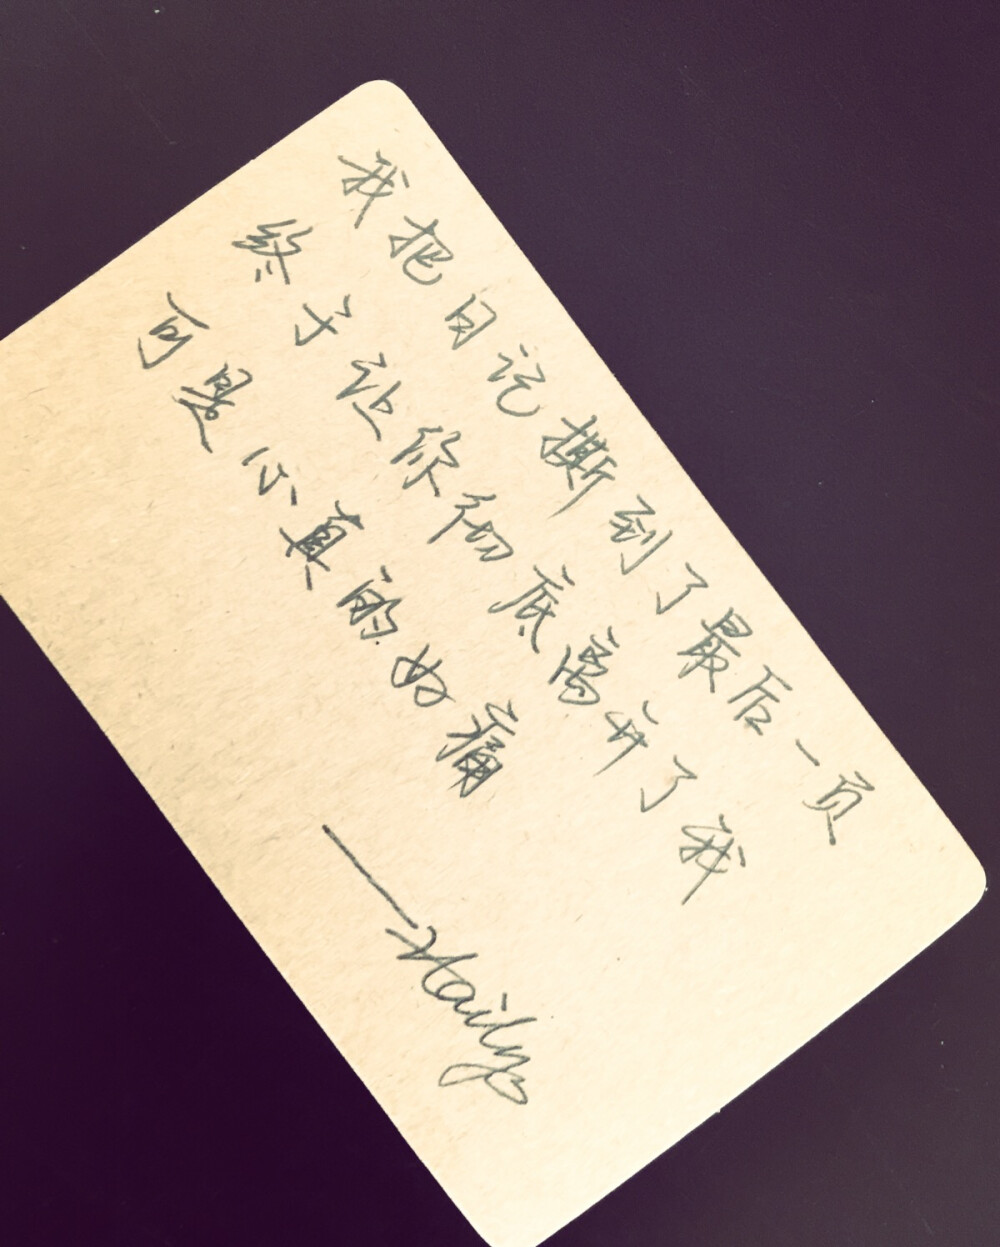 我把日记撕到了最后一页
终于让你彻底离开了我
可是心真的好痛
——Haily